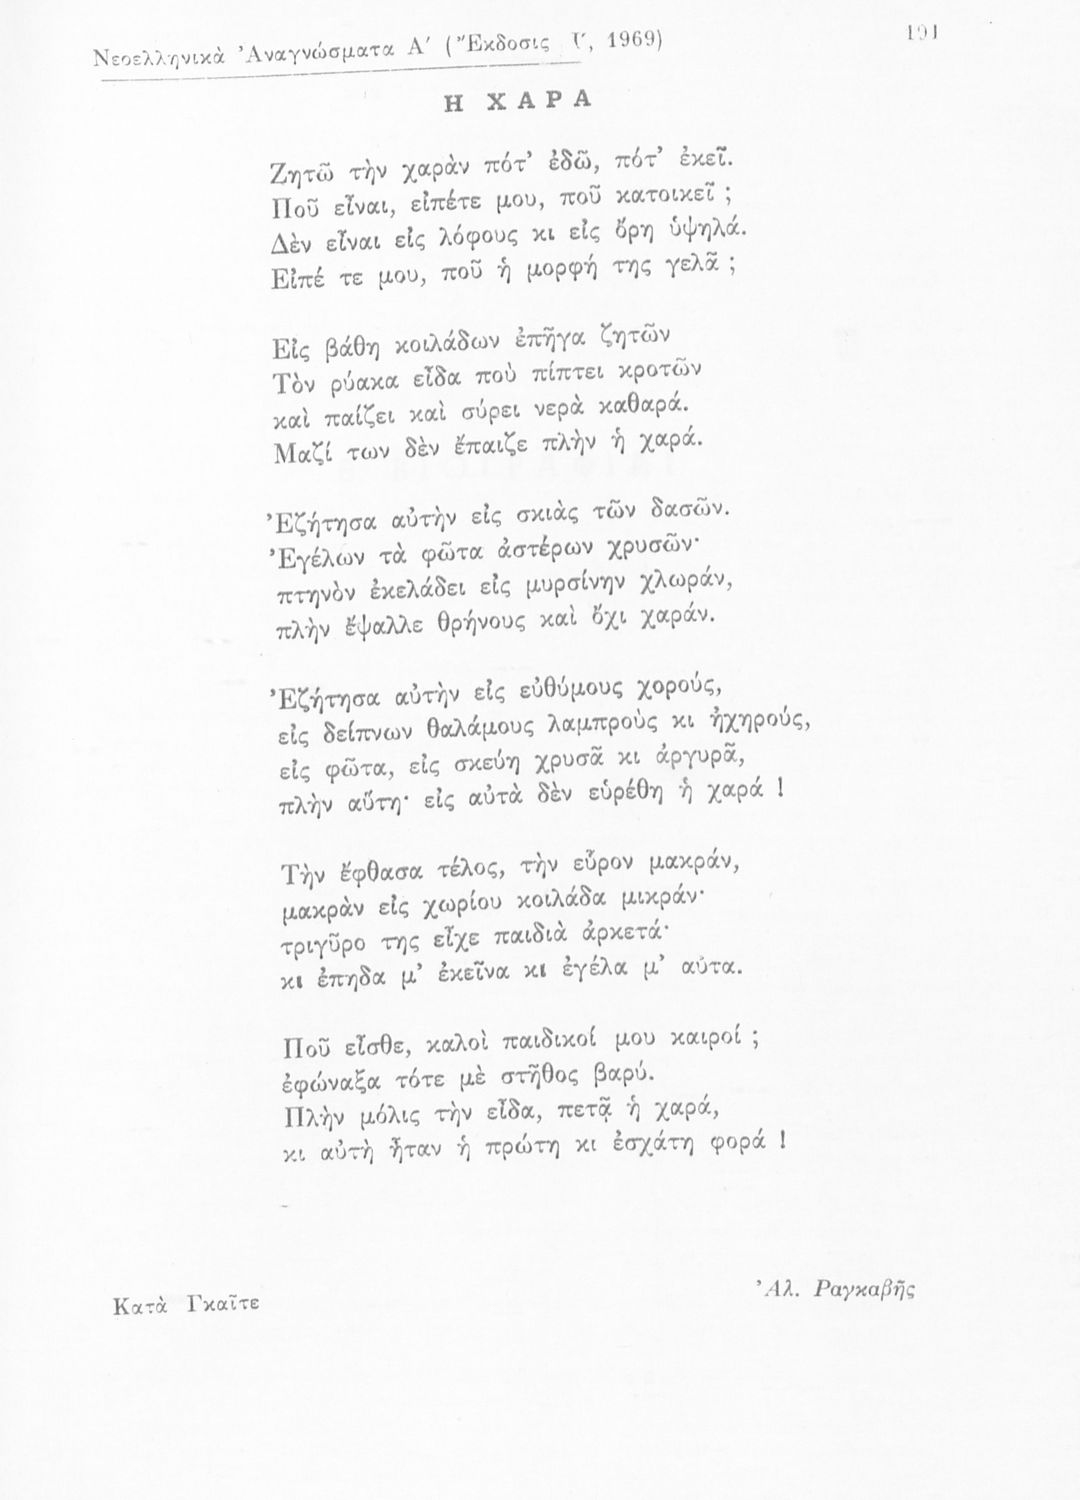 Νεοελληνικὰ Ἀναγνώσματα Α′ (Ἔκδοσις Ι′, 1969)
191
Η ΧΑΡΑ
Ζητῶ τὴν χαρὰν πότ’ ἐδῶ, πότ’ ἐκεῖ.
Ποῦ εἶναι, εἰπέτε μου, ποῦ κατοικεῖ ;
Δὲν εἶναι εἰς λόφους κι εἰς ὄρη ὑψηλά.
Εἰπέ τε μου, ποῦ ἡ μορφή της γελᾶ ;
Εἰς βάθη κοιλάδων ἐπῆγα ζητῶν
Τὸν ρύακα εἶδα ποὺ πίπτει κροτῶν
καὶ παίζει καὶ σύρει νερὰ καθαρά.
Μαζί των δὲν ἔπαιζε πλὴν ἡ χαρά.
Ἐζήτησα αὐτὴν εἰς σκιὰς τῶν δασῶν.
Ἐγέλων τὰ φῶτα ἀστέρων χρυσῶν·
πτηνὸν ἐκελάδει εἰς μυρσίνην χλωράν,
πλὴν ἔψαλλε θρήνους καὶ ὄχι χαράν.
Ἐζήτησα αὐτὴν εἰς εὐθύμους χορούς,
εἰς δείπνων θαλάμους λαμπροὺς κι ἠχηρούς,
εἰς φῶτα, εἰς σκεύη χρυσᾶ κι ἀργυρᾶ,
πλὴν αὕτη· εἰς αὐτὰ δὲν εὑρέθη ἡ χαρά !
Τὴν ἔφθασα τέλος, τὴν εὗρον μακράν,
μακρὰν εἰς χωρίου κοιλάδα μικράν·
τριγῦρο της εἶχε παιδιὰ ἀρκετά·
κι ἐπηδα μ’ ἐκεῖνα κι ἐγέλα μ’ αὐτα.
Ποῦ εἶσθε, καλοὶ παιδικοί μου καιροί ;
ἐφώναξα τότε μὲ στῆθος βαρύ.
Πλὴν μόλις τὴν εἶδα, πετᾷ ἡ χαρά,
κι αὐτὴ ἦταν ἡ πρώτη κι ἐσχάτη φορά !
Ἀλ. Ραγκαβῆς
Κατὰ Γκαῖτε